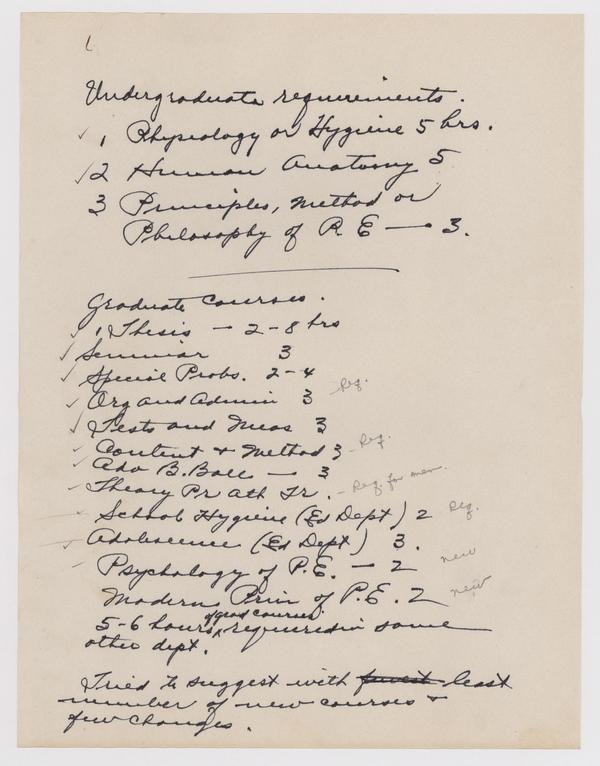 1
Undergraduate requirements.
✓ 1 Physiology or Hygiene 5 hrs.
✓ 2 Human Anatomy 5
3 Principles, Method or
Philosophy of P.E — 3.
Graduate Courses.
✓ 1. Thesis — 2-8 hrs
✓ Seminar 3
✓ Special Probs. 2-4
✓ Org and Admin 3 Req.
✓ Tests and Meas 3
✓ Content & Method 3 - Req.
✓ Adv B. Ball — 3
✓ Theory Pr Ath Tr. - Req for men.
✓ School Hygiene (Ed Dept) 2 Req.
✓ Adolescence (Ed Dept) 3.
✓ Psychology of P.E. — 2 new
Modern Prin of P.E. 2 new
5-6 hours of grad courses required in some
other dept.
Tried to suggest with fewest least
number of new courses &
few changes.